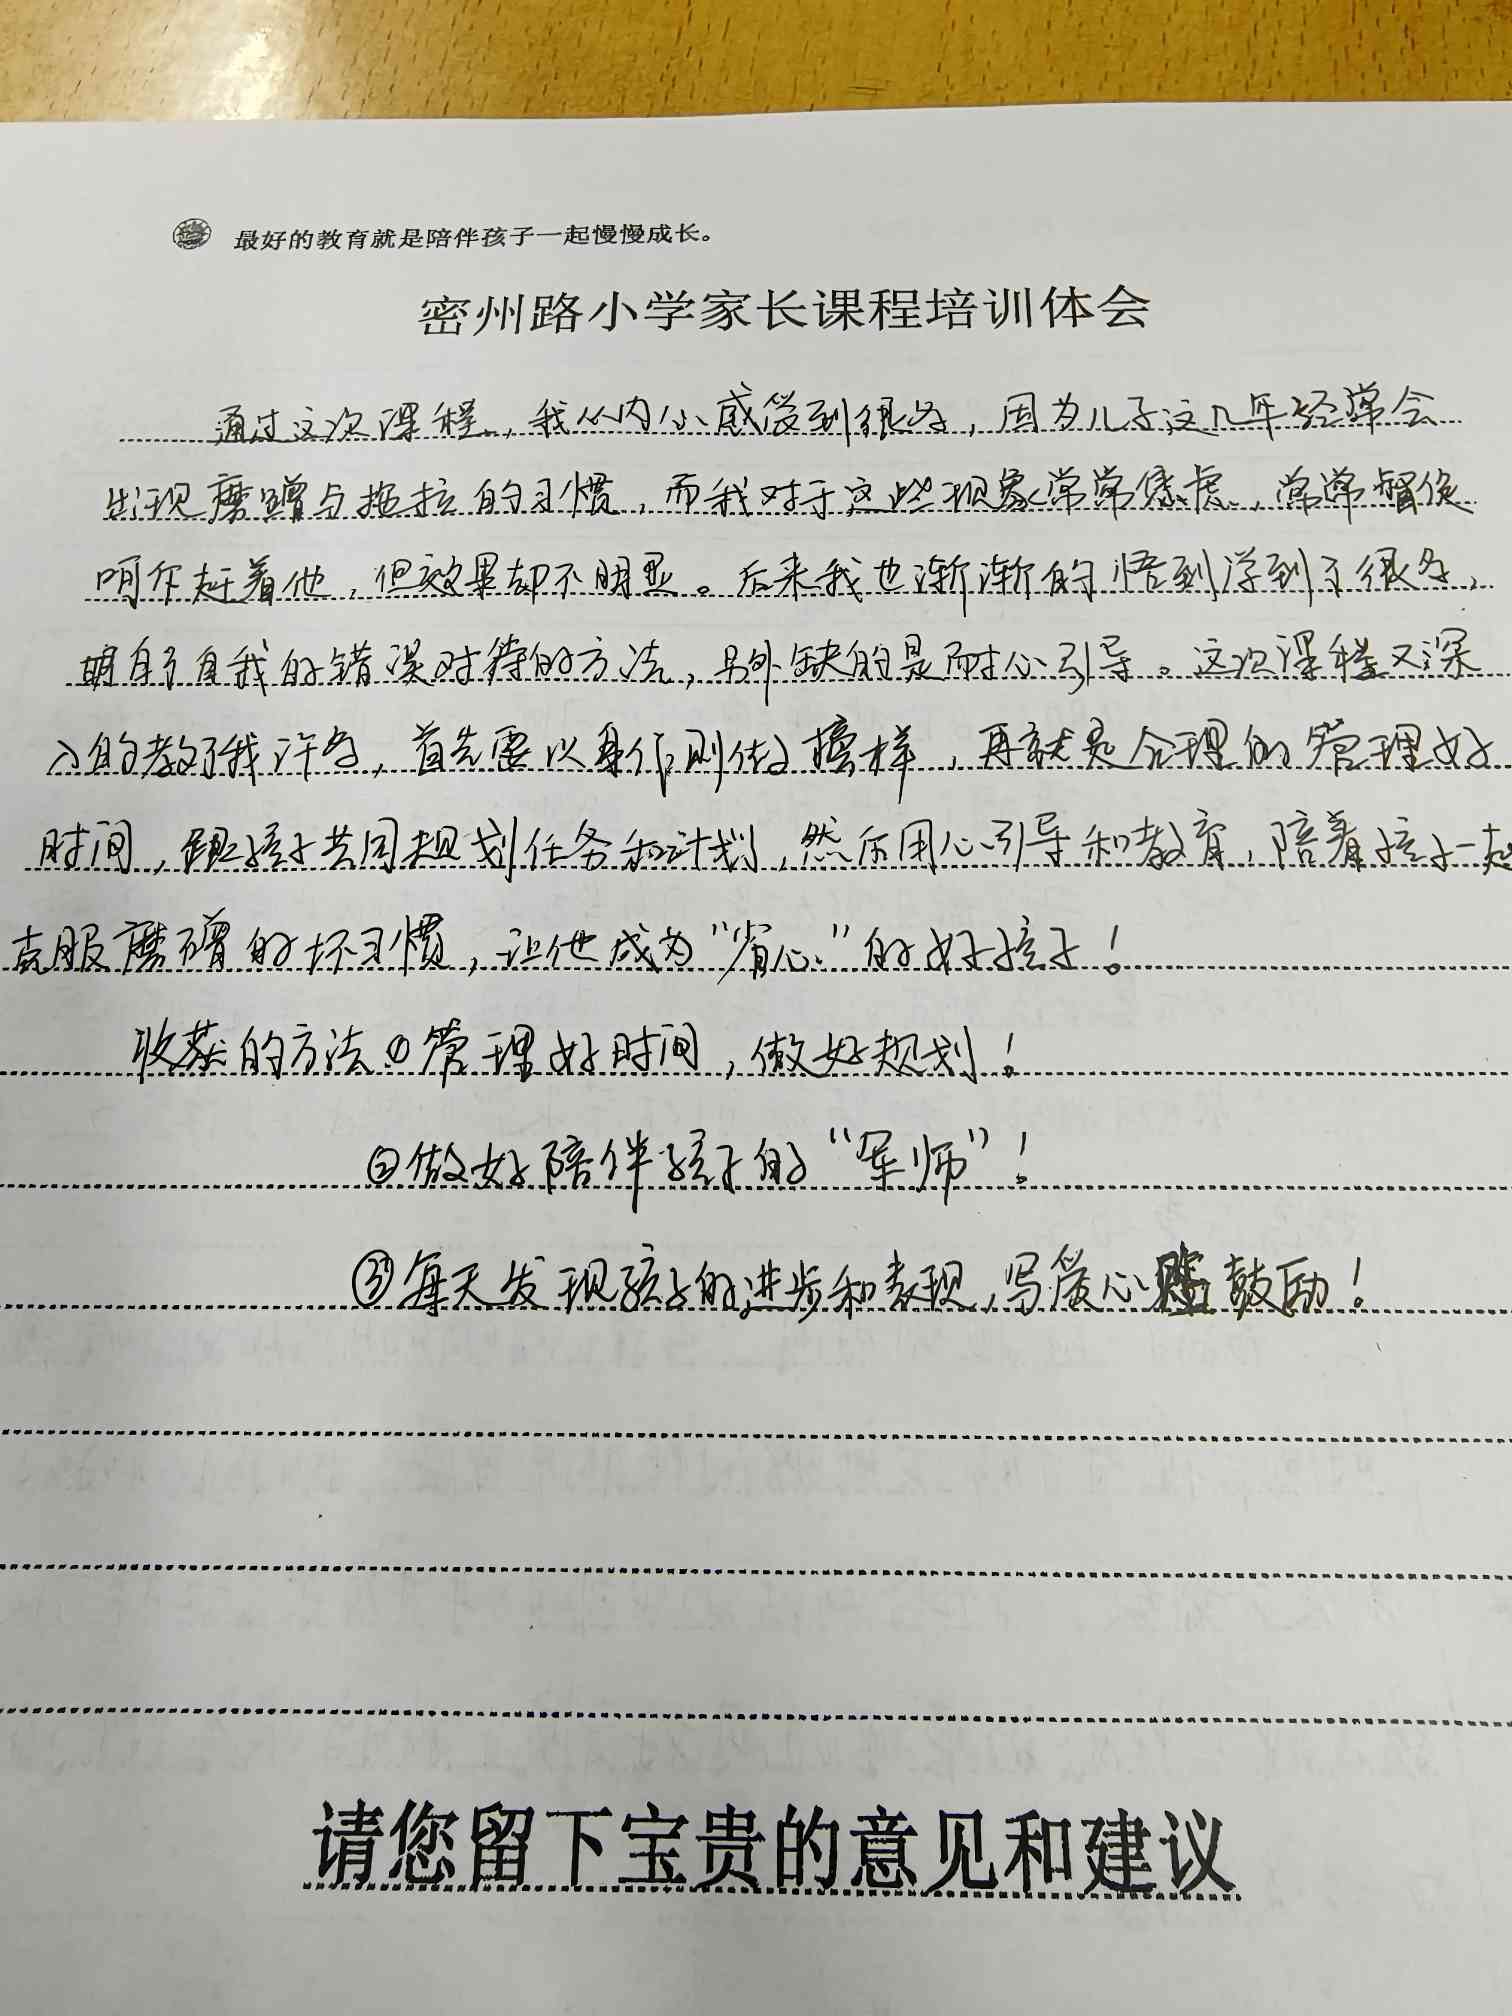 最好的教育就是陪伴孩子一起慢慢成长。
密州路小学家长课程培训体会
通过这次课程,我从内心感受到很多,因为儿子这几年经常会
出现磨蹭与拖拉的习惯,而我对于这些现象常常焦虑,常常督促
呵斥赶着他,但效果却不明显。后来我也渐渐的悟到学到了很多,
明白了自我的错误对待的方法,另外缺的是耐心引导。这次课程又深
入的教了我许多,首先要以身作则做榜样,再就是合理的管理好
时间,跟孩子共同规划任务和计划,然后用心引导和教育,陪着孩子一起
克服磨磳的坏习惯,让他成为“省心”的好孩子!
收获的方法①管理好时间,做好规划!
②做好陪伴孩子的“军师”!
③每天发现孩子的进步和表现,写爱心 鼓励!
请您留下宝贵的意见和建议